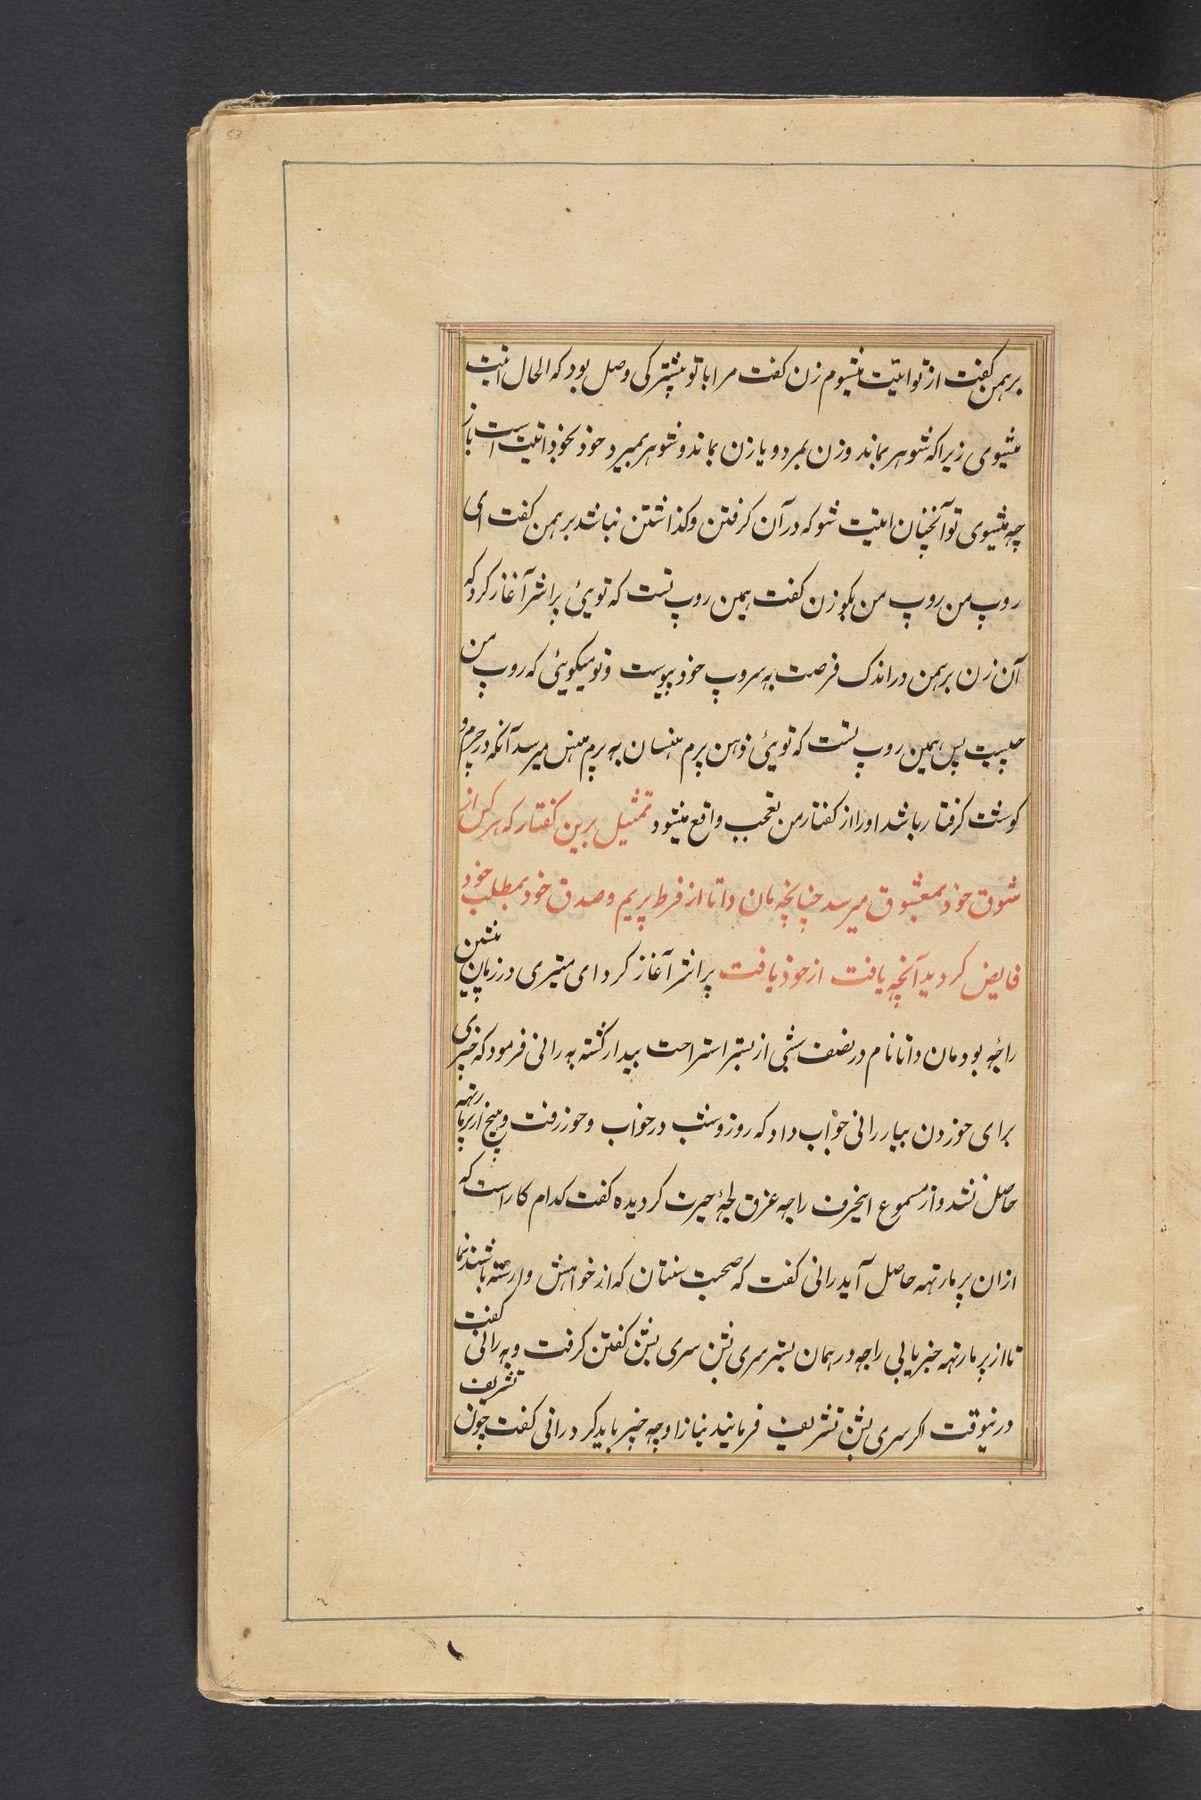 53
برهمن گفت از تو اتیت میشوم زن گفت مرا با تو پیشتر کی وصل بود که الحال اتیت
میشوی زیراکه شوهر بماند و زن بمرد و یا زن بماند و شوهر بمیرد خود بخود اتیت است باز
چه میشوی تو آنچنان اتیت شو که در آن گرفتن و گذاشتن نباشد برهمن گفت ای
روپ من روپ من بگو زن گفت همین روپ تست که تویئ پراشر آغاز کرد که
آن زن برهمن در اندک فرصت به سروپ خود پیوست و تو میگویئ که روپ من
چیست پس همین روپ تست که تویئ ذهن پرم هنسان به پرم هنس میرسد آنکه در چرم و
گوشت گرفتار باشد او را از گفتار من تعجب واقع میشود تمثیل برین گفتار که هر کس از
شوق خود بمعشوق میرسد چنانچه مان داتا از فرط پریم و صدق خود بمطلب خود
فایض گردید آنچه یافت از خود یافت پراشر آغاز کرد ای میتری در زمان پیشین
راجهٔ بود مان داتا نام در نصف شبی از بستر استراحت بیدار گشته به رانی فرمود که چیزی
برای خوردن بیار رانی جواب داد که روز و شب در خواب و خور رفت و هیچ از پرمارتهه
حاصل نشد و از مسموع اینحرف راجه غرق لجهٔ حیرت گردیده گفت کدام کار است که
ازان پرمارتهه حاصل آید رانی گفت که صحبت سنتان که از خواهش وارسته باشند نما
تا از پرمارتهه خبر یابی راجه در همان بستر سری بشن سری بشن گفتن گرفت و به رانی گفت
درینوقت اگر سری بشن تشریف فرمایند نیاز او چه چیز باید کرد رانی گفت چون
تشریف